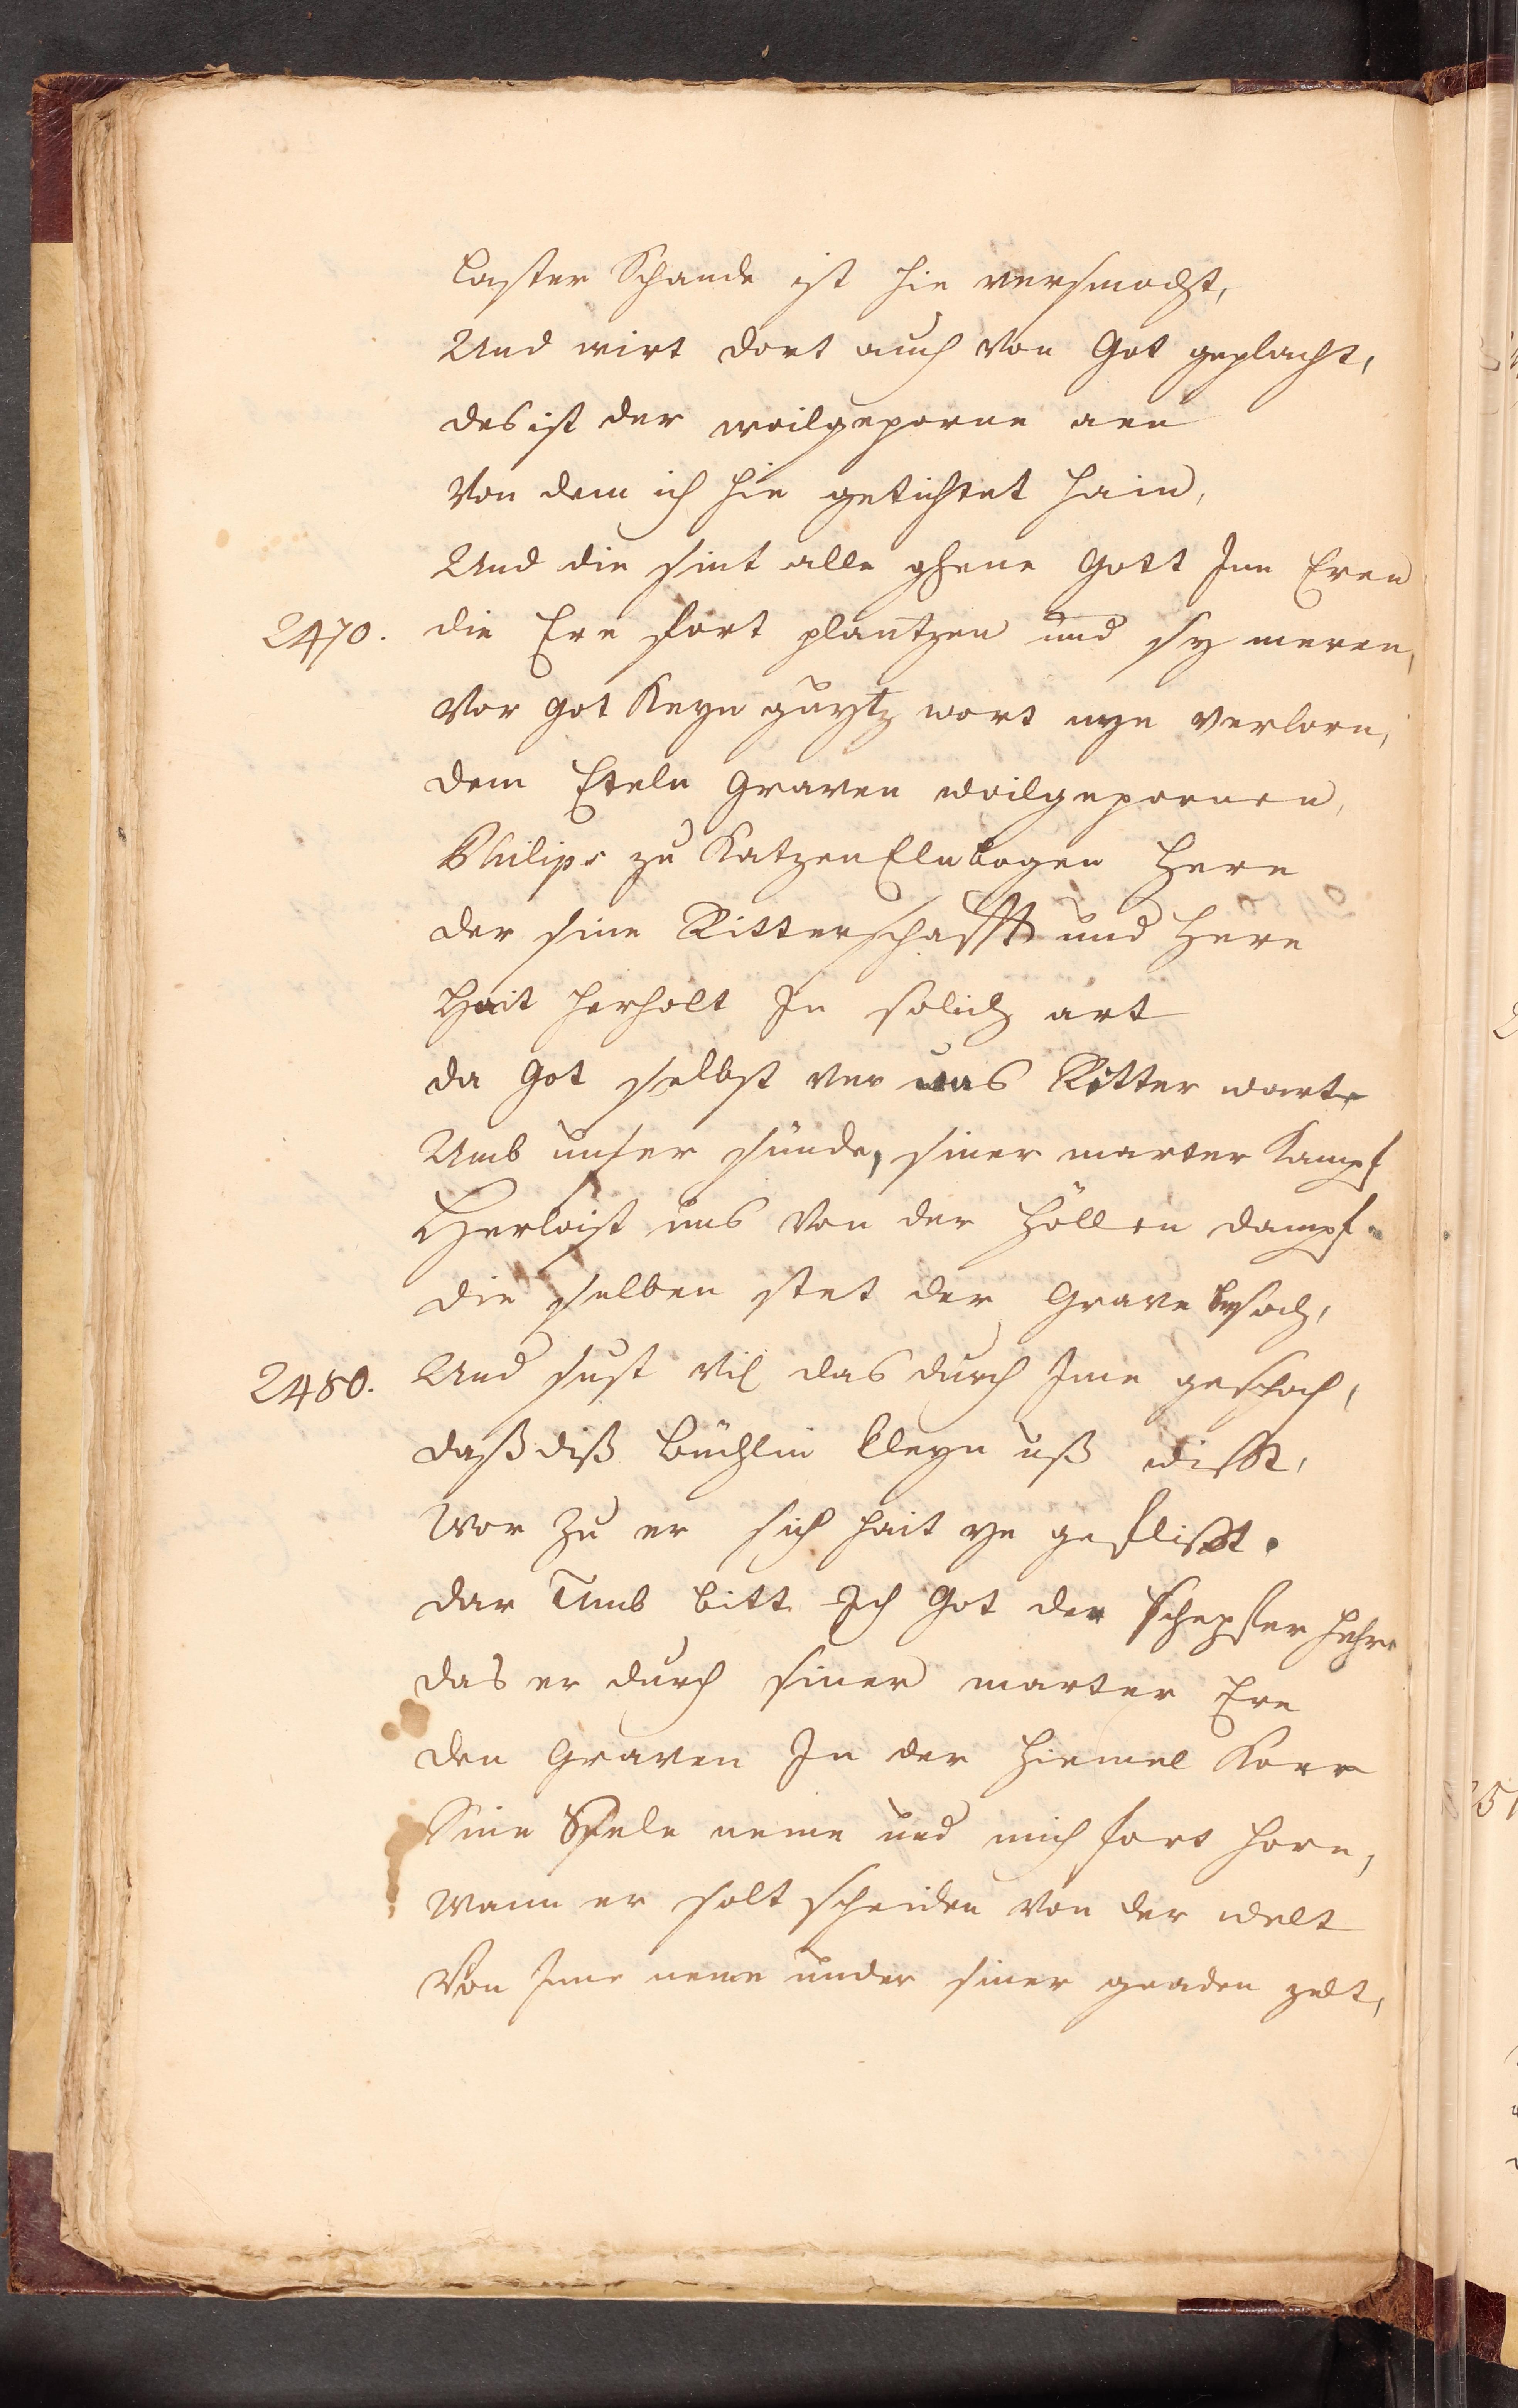 Laster Schande ist hie versmacht,
Und wirt dort auch von Got geplacht,
des ist der wailgeporne ane
Von dem ich hie getichtet hain,
Und die sint alle ghene Gott Inn Eren
2470. die Ere fort plantzen und sy meren,
Vor Got keyn guytz wort nye verlorn,
dem Eteln Graven woilgepornen,
Philips zu KatzenElnbogen Here
der sine Ritterschafft und Here
Hait herholt In solich art
da Got selbst ver uns Ritter wart
Umb unser sünde, siner marter Kampf
Herloist uns von der Höllen dampf.
die selben stet der Grave besach,
2480. Und sust vil das durch Ime geschach,
daß diß Büchlin kleyn uß wißt,
Wor zu er sich hait ye geflißt.
dar Umb bitt Ich Got der schepfer hehre
das er durch siner marter Ere
den Graven In der Hiemel Korr
Sine Seele neme und mich fort hore,
Wann er solt scheiden von der welt
Von Ime neme under siner gnaden zelt,